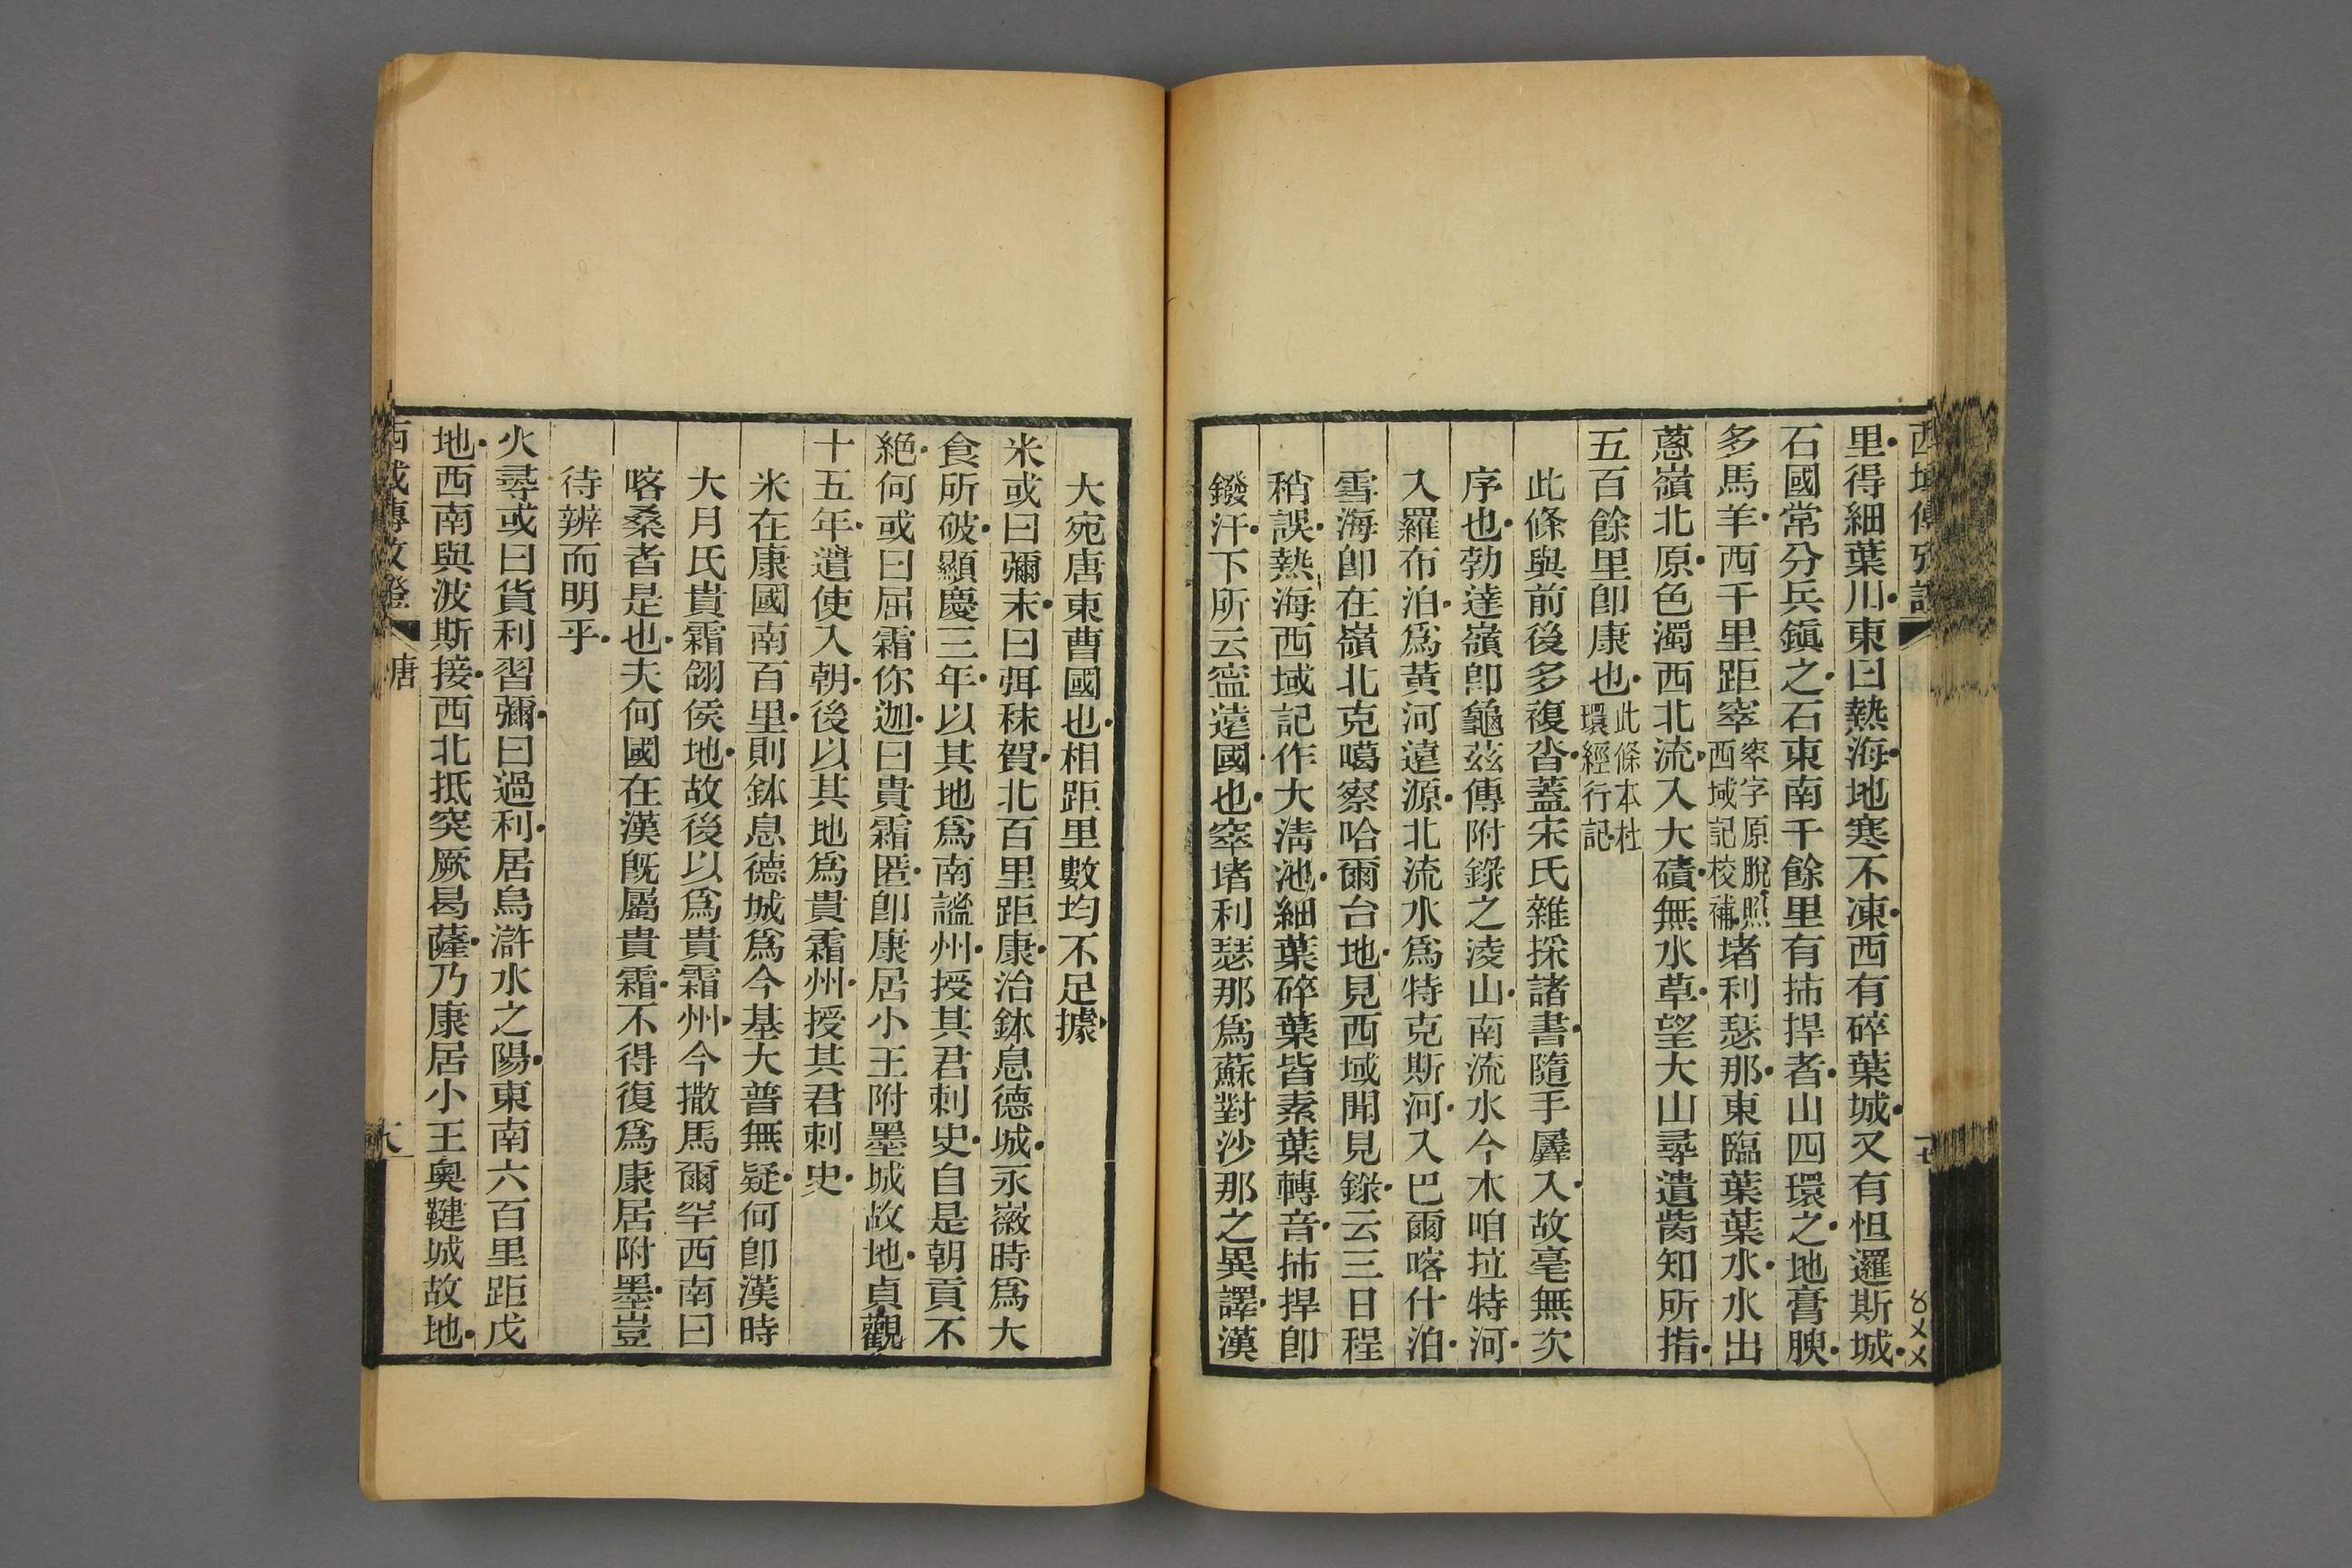 里得細葉川東曰熱海地寒不凍西有碎葉城又有怛邏斯城
石國常分兵鎮之石東南千餘里有㧊捍者山四環之地膏腴
多馬羊西千里距窣窣字原脫照西域記校補堵利瑟那東臨葉葉水水出
蔥嶺北原色濁西北流入大磧無水草望大山尋遺胔知所指
五百餘里卽康也此條本杜環經行記
此條與前後多複沓蓋宋氏雜採諸書隨手羼入故毫無次
序也勃達嶺卽龜茲傳附錄之淩山南流水今木咱拉特河
入羅布泊爲黃河遠源北流水爲特克斯河入巴爾喀什泊
雪海卽在嶺北克噶察哈爾台地見西域聞見錄云三日程
稍誤熱海西域記作大淸池細葉碎葉皆素葉轉音㧊捍卽
鏺汗下所云寍遠國也窣堵利瑟那爲蘇對沙那之異譯漢
大宛唐東曹國也相距里數均不足據
米或曰彌末曰弭秣賀北百里距康治鉢息德城永徽時爲大
食所破顯慶三年以其地爲南謐州授其君刺史自是朝貢不
絕何或曰屈霜你迦曰貴霜匿卽康居小王附墨城故地貞觀
十五年遣使入朝後以其地爲貴霜州授其君刺史
米在康國南百里則鉢息德城爲今基大普無疑何卽漢時
大月氏貴霜翖侯地故後以爲貴霜州今撒馬爾罕西南曰
喀桑者是也夫何國在漢旣屬貴霜不得復爲康居附墨豈
待辨而明乎
火尋或曰貨利習彌曰過利居烏滸水之陽東南六百里距戊
地西南與波斯接西北抵突厥曷薩乃康居小王奧鞬城故地
唐